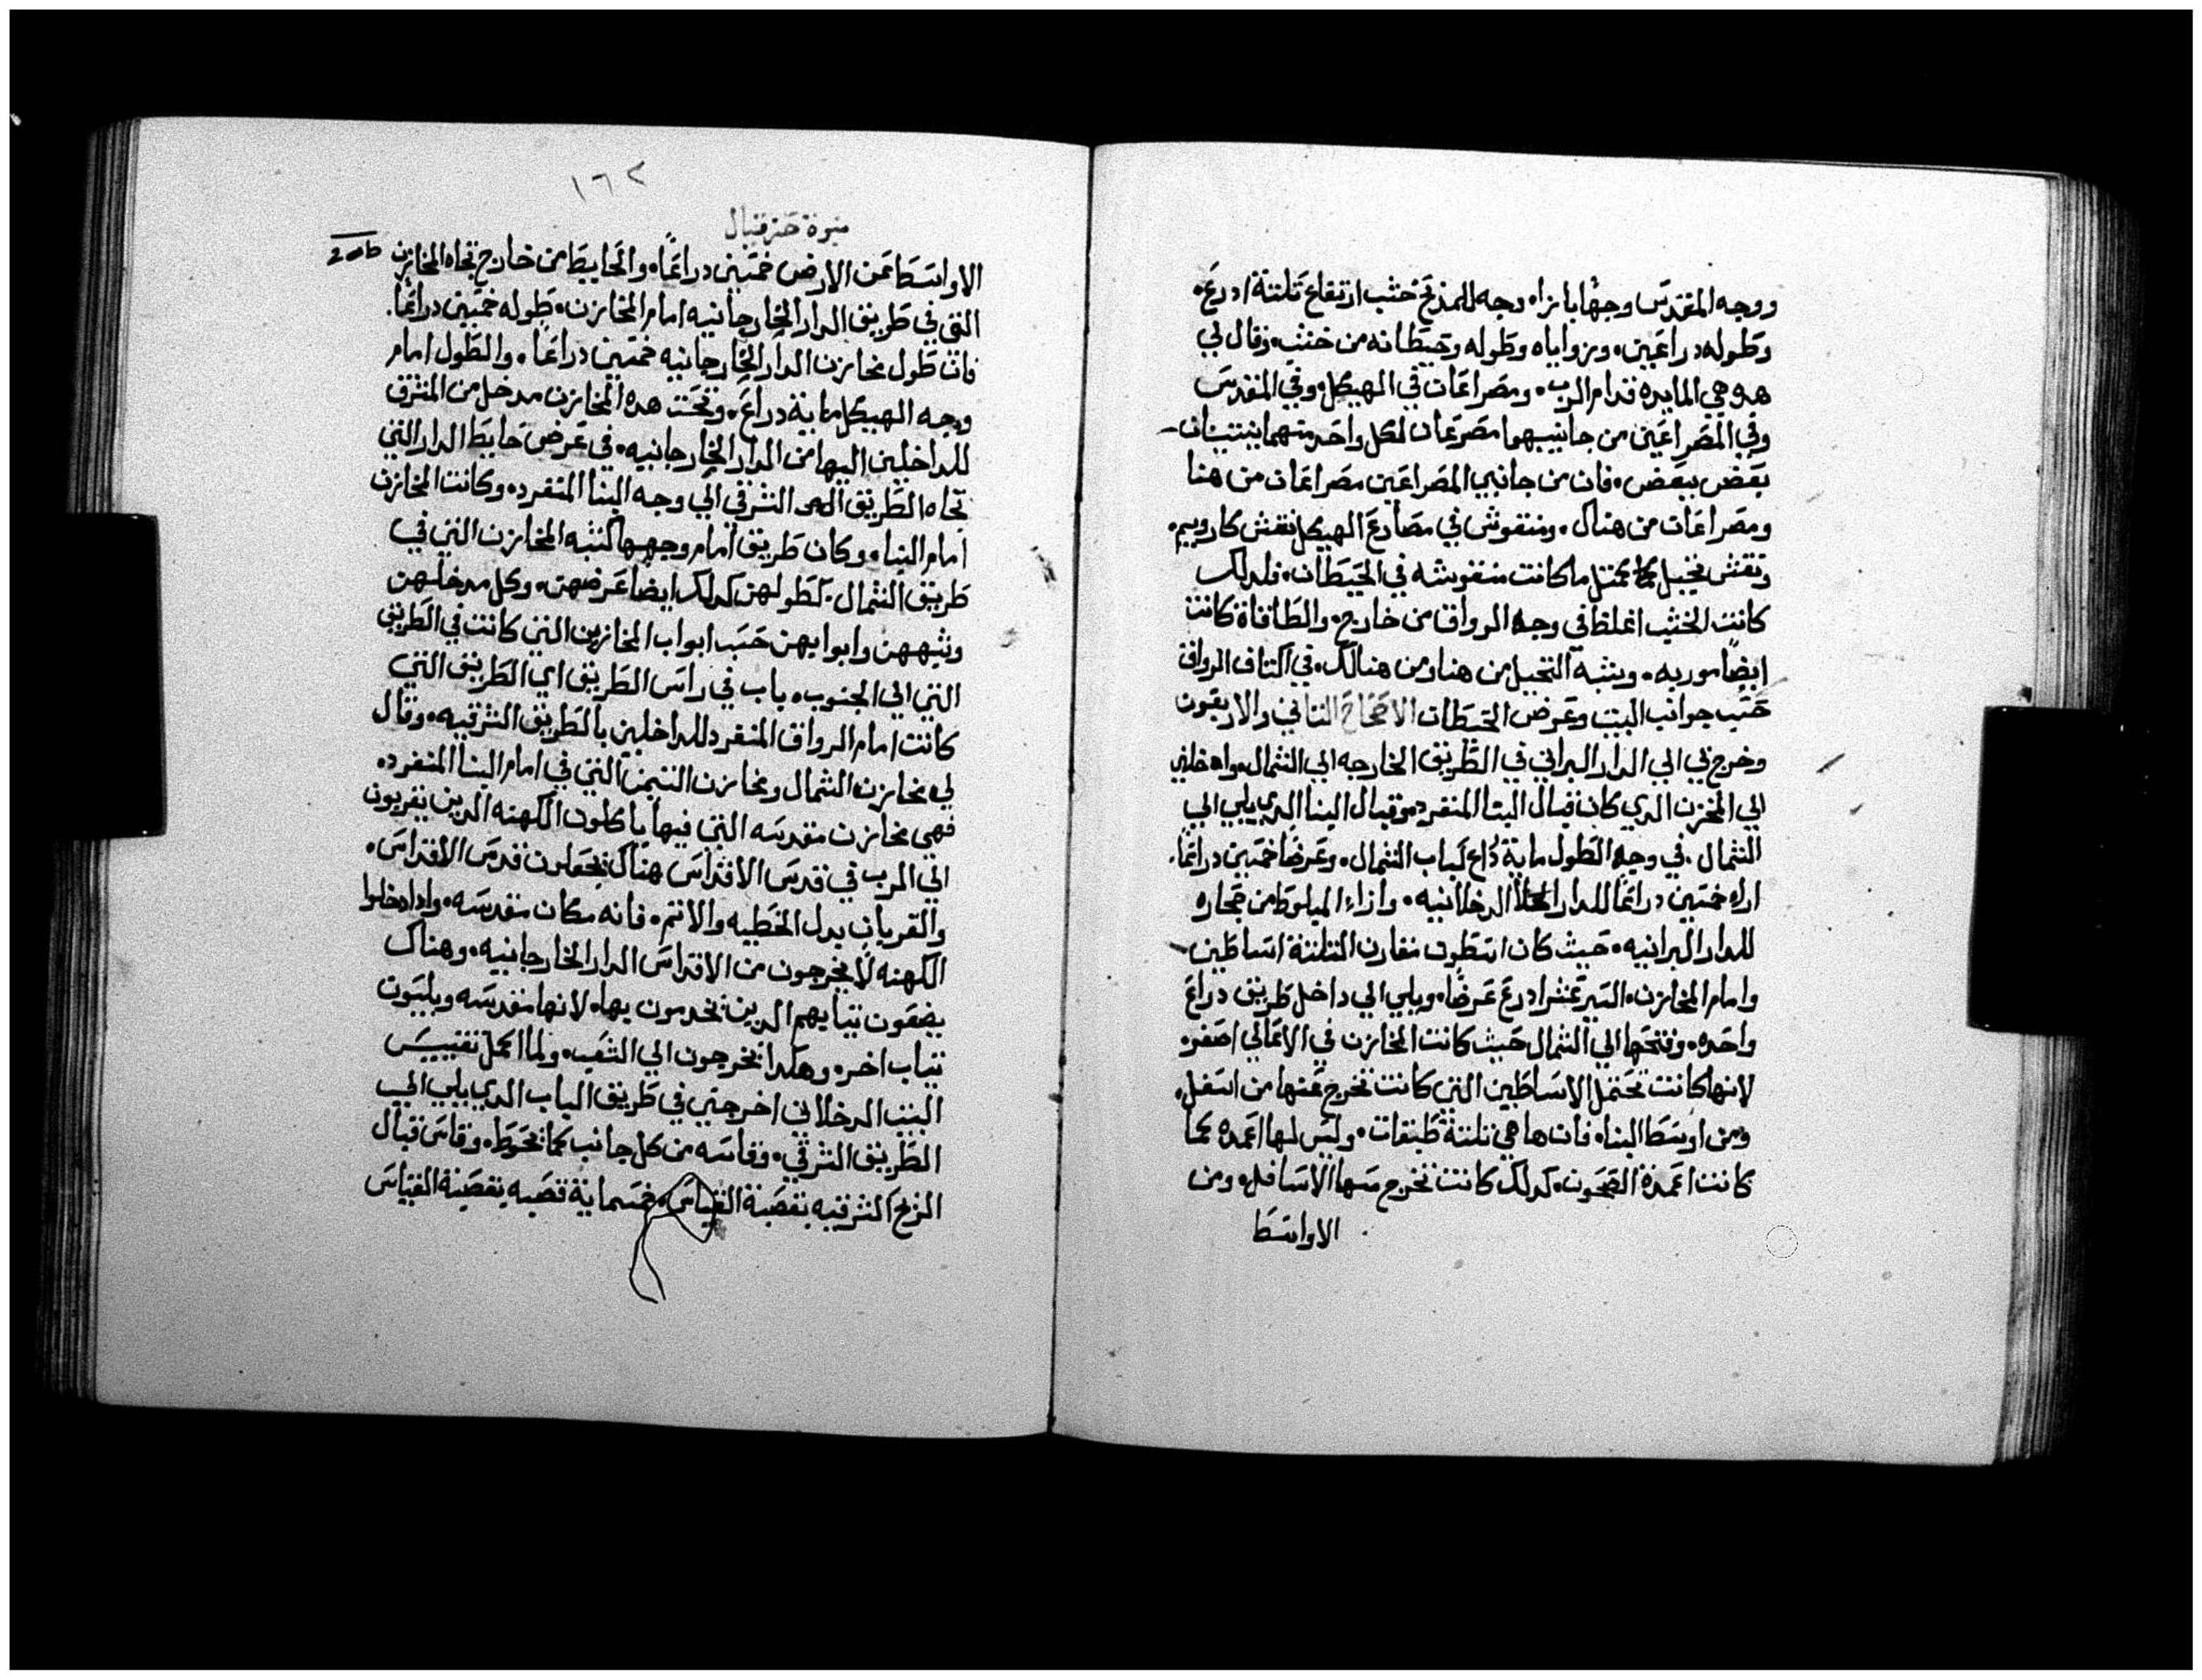 ووجه المقدس وجهًا بازاه وجه للمذبح خشب ارتفاع تلتة ادرع.
وطوله دراعين. وزواياه وطوله وحيطانه من خشب. وقال لي
هده هي المايده قدام الرب. ومصراعان في الهيكل وفي المقدس
وفي المصراعين من جانبيهما مصرعان لكل واحد منهما ينتنيان
بعض ببعض. فان من جانبي المصراعين مصراعان من هنا
ومصراعان من هناك. ومنقوش في مصارع الهيكل نقش كاروبيم.
ونقش نخيل كمتل ما كانت منقوشه في الحيطان. فلدلك
كانت الخشب اغلظ في وجه الرواق من خارج. والطاقاة كانت
ايضًا موربه. وشبه النخيل من هنا ومن هنالك. في اكتاف الرواق
حسب جوانب البيت وعرض الحيطان الاصحاح التاني والاربعون
وخرج بي الي الدار البراني في الطريق الخارجه الي الشمال وادخلني
الي المخزن الدي كان قبال البنا المنفرد وقبال البنا الدي يلي الي
الشمال. في وجه الطول ماية دراع لباب الشمال. وعرضًا خمسين دراعًا.
ازاء خمسين دراعًا للدار الدخلانيه. وازاء المبلوط من حجاره
للدار البرانيه. حيث كان اسطون مقارن التلتة اساطين
وامام المخازن. السير عشر ادرع عرضًا. ويلي الي داخل طريق دراع
واحده. وفتحها الي الشمال حيث كانت المخازن في الاعالي اصغر.
لانها كانت تحتمل الاساطين التي كانت تخرج عنها من اسفل.
ومن اوسط البنا. فان ها هي تلتة طبقات. وليس لها اعمده كما
كانت اعمدة الصحون. كدلك كانت تخرج منها الاسافل. ومن
الاواسط
١٦٢
نبوة حزقيال
الاواسط عن الارض خمسين دراعًا. والحايط من خارج تجاه المخازن
التي في طريق الدار الخارجانيه امام المخازن. طوله خمسين دراعًا.
فان طول مخازن الدار الخارجانيه خمسين دراعًا. والطول امام
وجه الهيكل ماية دراع. وتحت هده المخازن مدخل من الشرق
للداخلين اليها من الدار الخارجانيه. في عرض حايط الدار التي
تجاه الطريق الشرقي الي وجه البنا المنفرد. وكانت المخازن
امام البنا. وكان طريق امام وجهها كشبه المخازن التي في
طريق الشمال. كطولهن كدلك ايضًا عرضهن. وكل مدخلهن
وشبههن وابوابهن حسب ابواب المخازين التي كانت في الطريق
التي الي الجنوب. باب في راس الطريق اي الطريق التي
كانت امام الرواق المنفرد للداخلين بالطريق الشرقيه. وقال
لي مخازن الشمال ومخازن التيمن التي في امام البنا المنفرد.
فهي مخازن مقدسه التي فيها ياكلون الكهنه الدين يقربون
الي الرب في قدس الاقداس هناك يجعلون قدس الاقداس.
والقربان بدل الخطيه والاتم. فانه مكان مقدسه. وادا دخلوا
الكهنه لا يخرجون من الاقداس الدار الخارجانيه. وهناك
يضعون تيابهم الدين يخدمون بها. لانها مقدسه ويلبسون
تياب اخر. وهكدا يخرجون الي الشعب. ولما اكمل تقييس
البيت الدخلاني اخرجني في طريق الباب الدي يلي الي
الطريق الشرقي. وقاسه من كل جانب كما يحوط. وقاس قبال
الريح الشرقيه بقصبة القياس. خمسماية قصبه بقصبة القياس